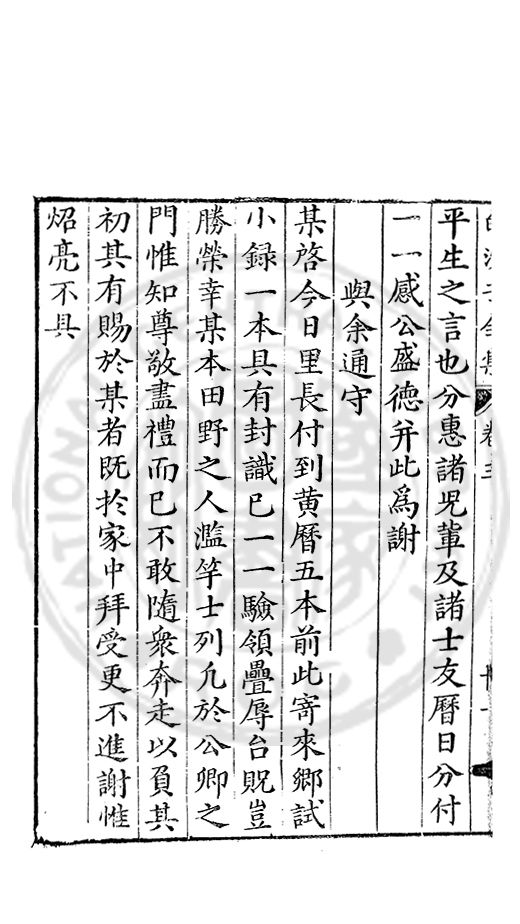 平生之言也分惠諸児輩及諸士友曆日分付
一一感公盛徳并此爲謝
與余通守
某啓今日里長付到黄曆五本前此寄来鄉試
小録一本具有封識已一一驗領疊辱台貺豈
勝榮幸某本田野之人濫竽士列凢於公卿之
門惟知尊敬盡禮而已不敢隨衆奔走以負其
初其有賜於某者既扵家中拜受更不進謝惟
炤亮不具